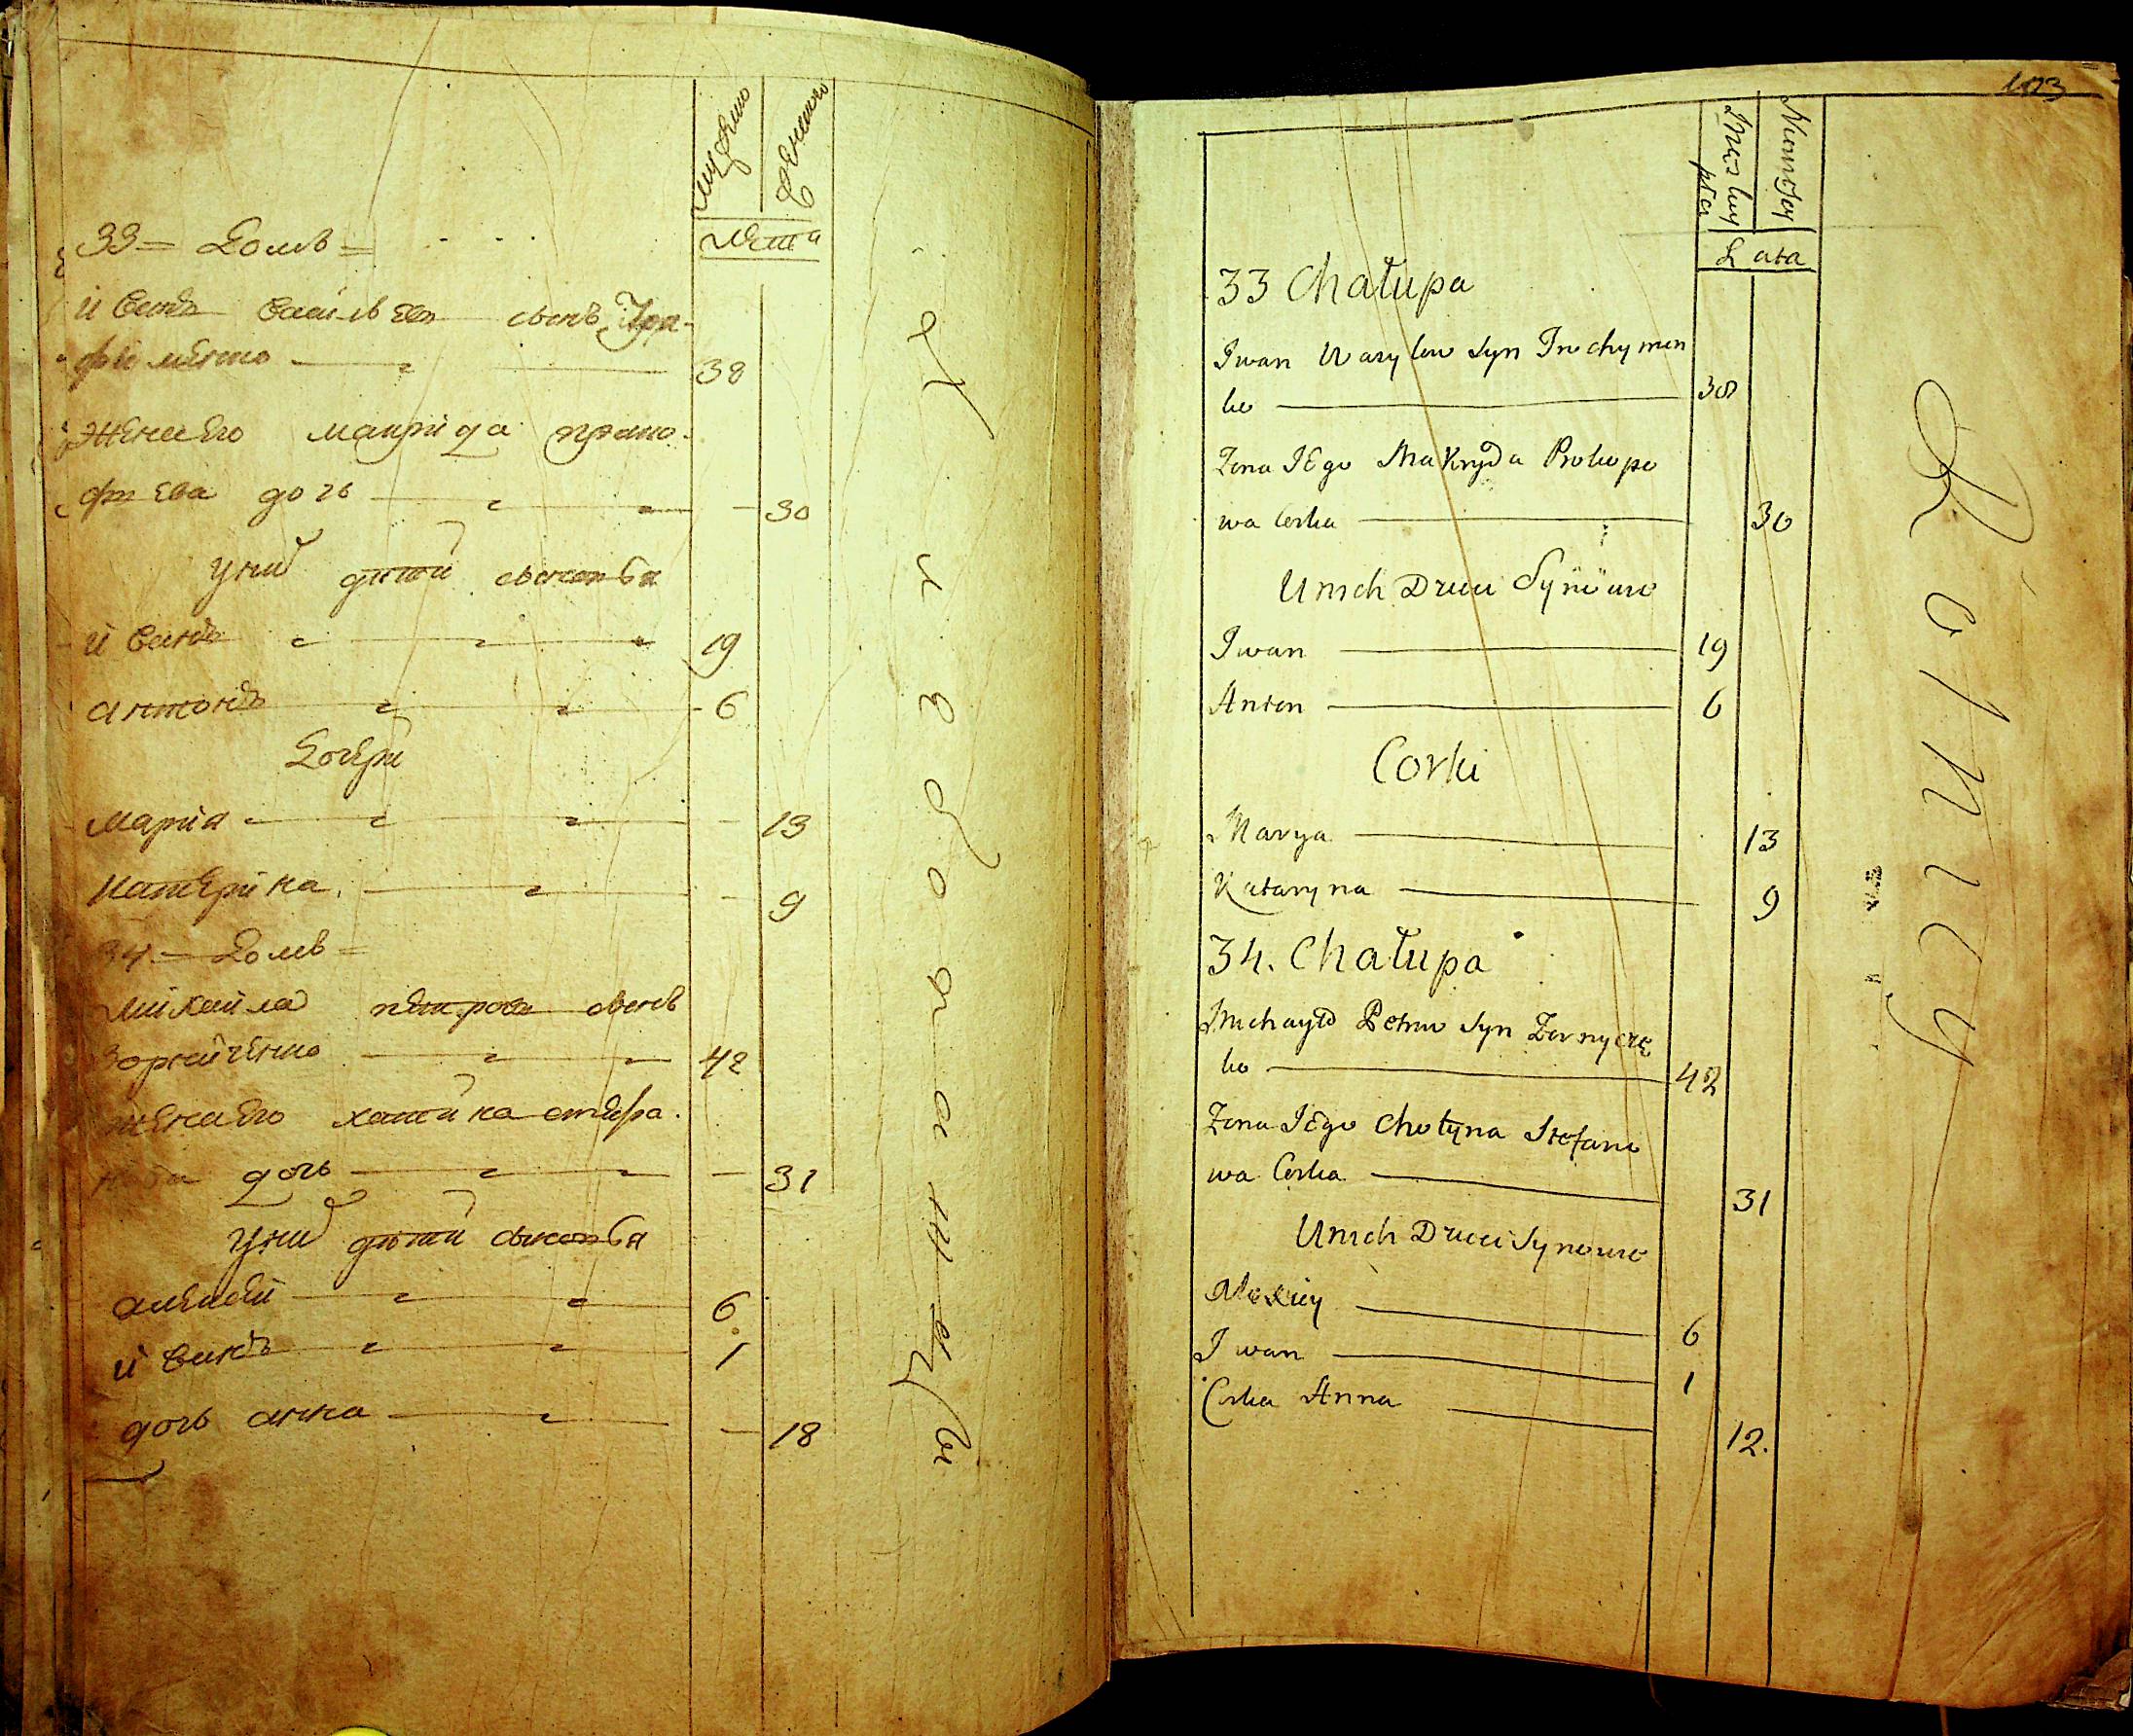 Мужеско
Женско
Лета
33 = Домъ =
Иванъ Васильевъ сынъ Тро-
фименко 38
Жена Его Макрида Проко-
фиева дочь 30
У них дети сыновья
Иванъ 19
Антонъ 6
Дочери
Мария 13
Катерина 9
34 = Домъ =
Михайла Петровъ сынъ
Зорниченко 42
Жена Его Хатина Стефа-
нова дочь 31
У них дети сыновья
Алексей 6
Иванъ 1
дочь Анна 18
103
Męska płci
Niewiasty
Lata
33 Chałupa
Iwan Wasylow Syn Trochymen
ko 38
Zona IEgo Makryda Prokopo
wa Corka 30
U nich Dzieci Synowe
Iwan 19
Anton 6
Corki
Marya 13
Kataryna 9
34. Chałupa
Michayło Petrow Syn Zornycze
ko 42
Zona IEgo Chotyna Stefano
wa Corka 31
U nich Dzieci Synowe
Alexiey 6
Iwan 1
Corka Anna 12.
Rolnicy